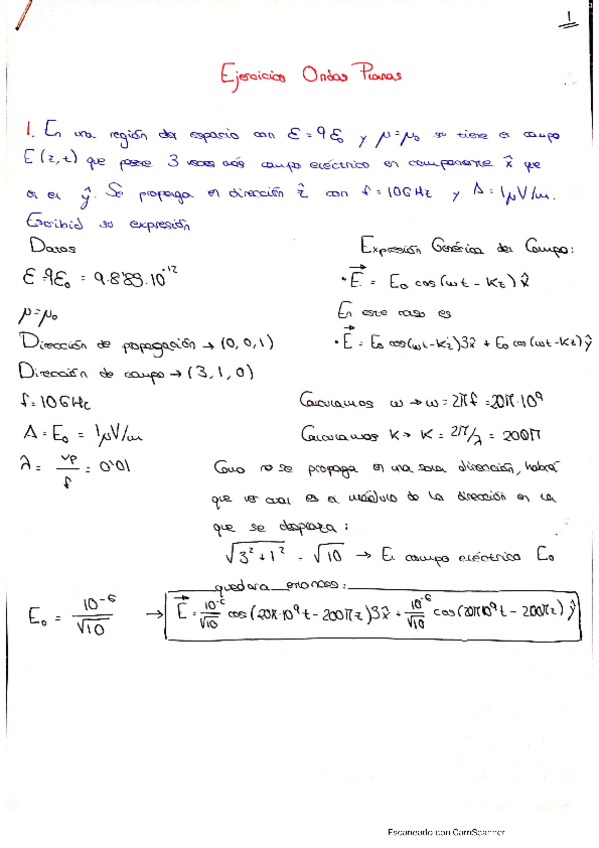 1
Ejercicios Ondas Planas
1. En una región del espacio con ε = 9ε₀ y μ = μ₀ se tiene el campo
E(z,t) que posee 3 veces más campo eléctrico en componente x̂ que
en el ŷ. Se propaga en dirección ẑ con f = 10GHz y A = 1μV/m.
Escribid su expresión
Datos
ε = 9ε₀ = 9·8'85·10⁻¹²
μ = μ₀
Dirección de propagación → (0,0,1)
Dirección de campo → (3,1,0)
f = 10GHz
A = E₀ = 1μV/m
λ = vp/f = 0'01
Expresión Genérica del Campo:
· E⃗ = E₀ cos(ωt - Kz) x̂
En este caso es
· E⃗ = E₀ cos(ωt - Kz)3x̂ + E₀ cos(ωt - Kz)ŷ
Calculamos ω → ω = 2πf = 20π·10⁹
Calculamos K → K = 2π/λ = 200π
Como no se propaga en una sola dirección, habrá
que ver cual es el módulo de la dirección en la
que se desplaza:
√(3² + 1²) = √10 → El campo eléctrico E₀
quedará entonces:
E₀ = 10⁻⁶/√10 → E⃗ = 10⁻⁶/√10 cos(20π·10⁹t - 200πz)3x̂ + 10⁻⁶/√10 cos(20π10⁹t - 200πz)ŷ
Escaneado con CamScanner